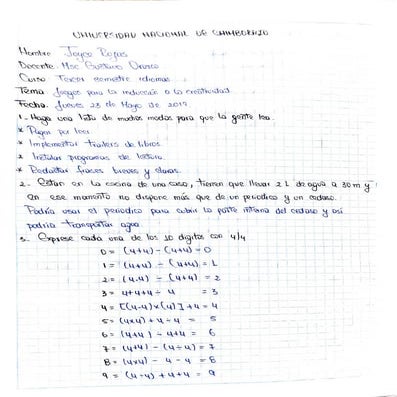 UNIVERSIDAD NACIONAL DE CHIMBORAZO
Nombre: Joyce Rojas
Docente: Msc Gustavo Orozco
Curso: Tercer semestre idiomas.
Tema: Juegos para la inducción a la creatividad.
Fecha: Jueves 23 de Mayo de 2019
1. Haga una lista de muchos modos para que la gente lea.
* Pagar por leer
* Implementar trailers de libros.
* Instalar programas de lectura.
* Redactar frases breves y claras.
2. Están en la cocina de una casa, tienen que llevar 2 L de agua a 30m y
en ese momento no dispone más que de un periodico y un cedazo.
Podría usar el periodico para cubrir la parte interna del cedazo y así
podria transportar agua.
3. Exprese cada uno de los 10 digitos con 4/4
0 = (4+4) - (4+4) = 0
1 = (4+4) ÷ (4+4) = 1
2 = (4·4) ÷ (4+4) = 2
3 = 4+4+4 ÷ 4 = 3
4 = [(4-4)x(4)] +4 = 4
5 = (4x4) + 4 ÷ 4 = 5
6 = (4+4) ÷ 4+4 = 6
7 = (4+4) - (4÷4) = 7
8 = (4x4) - 4 - 4 = 8
9 = (4÷4) + 4+4 = 9